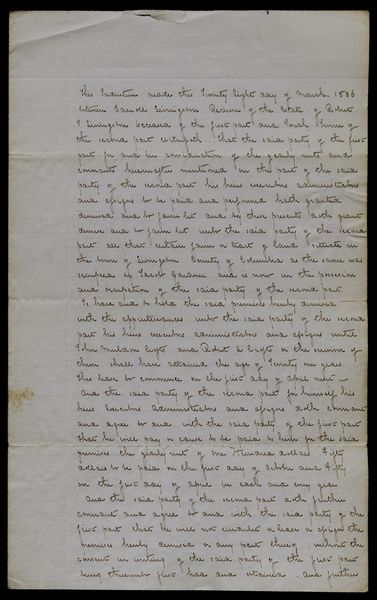 This Indenture made this Twenty Eight day of March 1856
between Livingston Receiver of the Estate of Robert
T. Livingston deceased of the first part and of
the second part witnesseth That the said party of the first
part for and in consideration of the yearly rents and
covenants hereinafter mentioned on the part of the said
party of the second part his heirs executors administrators
and assigns to be paid and performed hath granted
demised and to farm let and by these presents doth grant
demise and to farm let unto the said party of the second
part all that certain farm or tract of land situate in
the town of Livingston County of Columbia as the same was
occupied by Jacob and is now in the possession
and occupation of the said party of the second part
To have and to hold the said premises hereby demised
with the appurtenances unto the said party of the second
part his heirs executors administrators and assigns until
John and Robert L or the survivor of
them shall have attained the age of Twenty one years.
This lease to commence on the first day of April next —
And the said party of the second part for himself his
heirs Executors Administrators and assigns doth covenant
and agree to and with the said party of the first part
that he will pay or cause to be paid to him for the said
premises the yearly rent of One Hundred dollars Fifty
dollars to be paid on the first day of October and Fifty
on the first day of April in each and every year
And the said party of the second part doth further
covenant and agree to and with the said party of the
first part that he will not or lease or assign the
premises hereby demised or any part thereof without the
consent in writing of the said party of the first part
being thereunto first had and obtained. And further